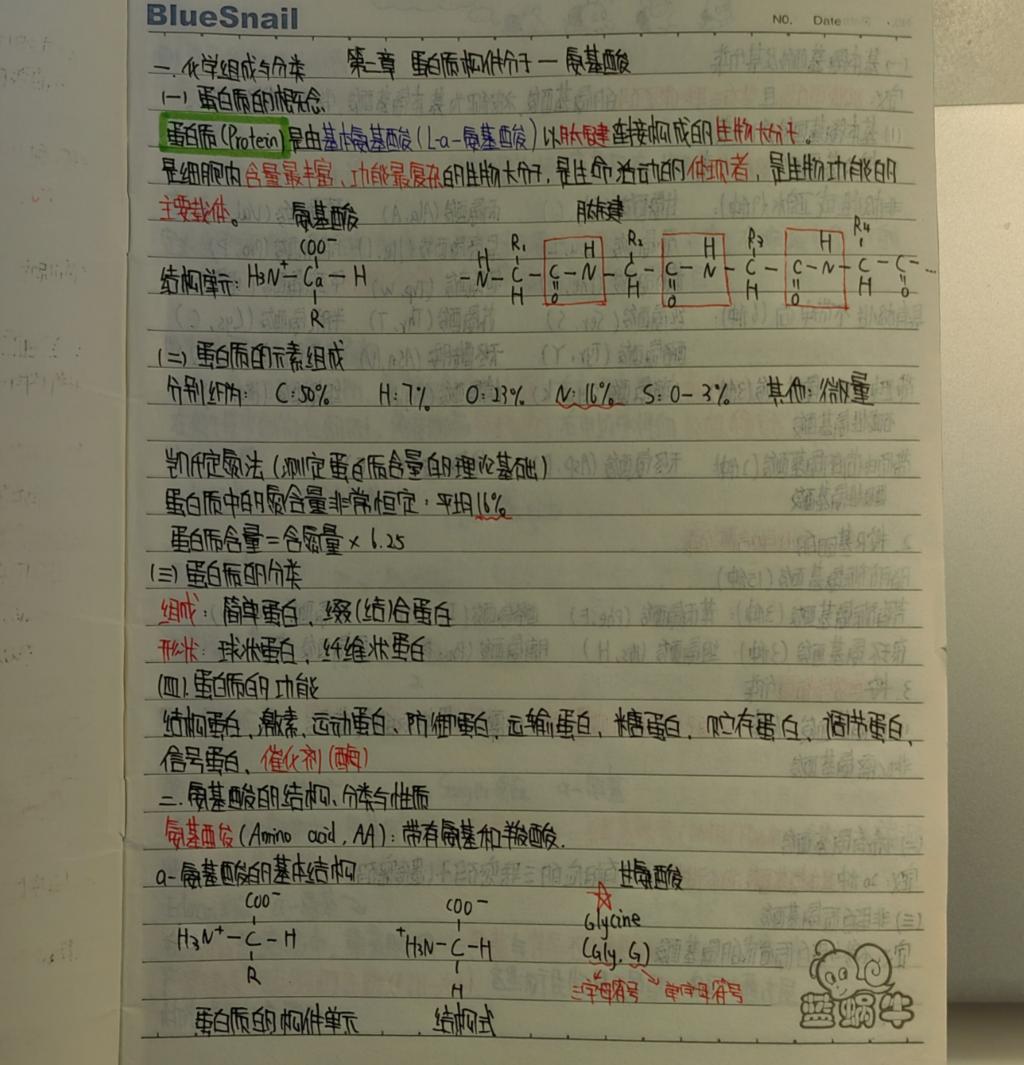 BlueSnail NO. Date
一.化学组成与分类 第二章 蛋白质构件分子—氨基酸
(一) 蛋白质的概念
蛋白质(Protein)是由基本氨基酸(L-α-氨基酸)以肽键连接构成的生物大分子。
是细胞内含量最丰富、功能最复杂的生物大分子,是生命活动的体现者,是生物功能的
主要载体。 氨基酸 肽键
COO⁻ H R₁ H R₂ H R₃ H R₄
结构单元: H₃N⁺—Cα—H —N—C—C—N—C—C—N—C—C—N—C—C—…
R H O H O H O O
(二) 蛋白质的元素组成
分别约为: C:50% H:7% O:23% N:16% S:0-3% 其他:微量
凯氏定氮法(测定蛋白质含量的理论基础)
蛋白质中的氮含量非常恒定,平均16%
蛋白质含量=含氮量×6.25
(三) 蛋白质的分类
组成: 简单蛋白、缀(结)合蛋白
形状: 球状蛋白、纤维状蛋白
(四).蛋白质的功能
结构蛋白、激素、运动蛋白、防御蛋白、运输蛋白、糖蛋白、贮存蛋白、调节蛋白、
信号蛋白、催化剂(酶)
二.氨基酸的结构、分类与性质
氨基酸(Amino acid, AA):带有氨基和羧酸.
α-氨基酸的基本结构 甘氨酸
COO⁻ COO⁻ Glycine
H₃N⁺—C—H ⁺H₃N—C—H (Gly, G)
R H 三字母符号 单字母符号
蛋白质的构件单元 结构式
蓝蜗牛